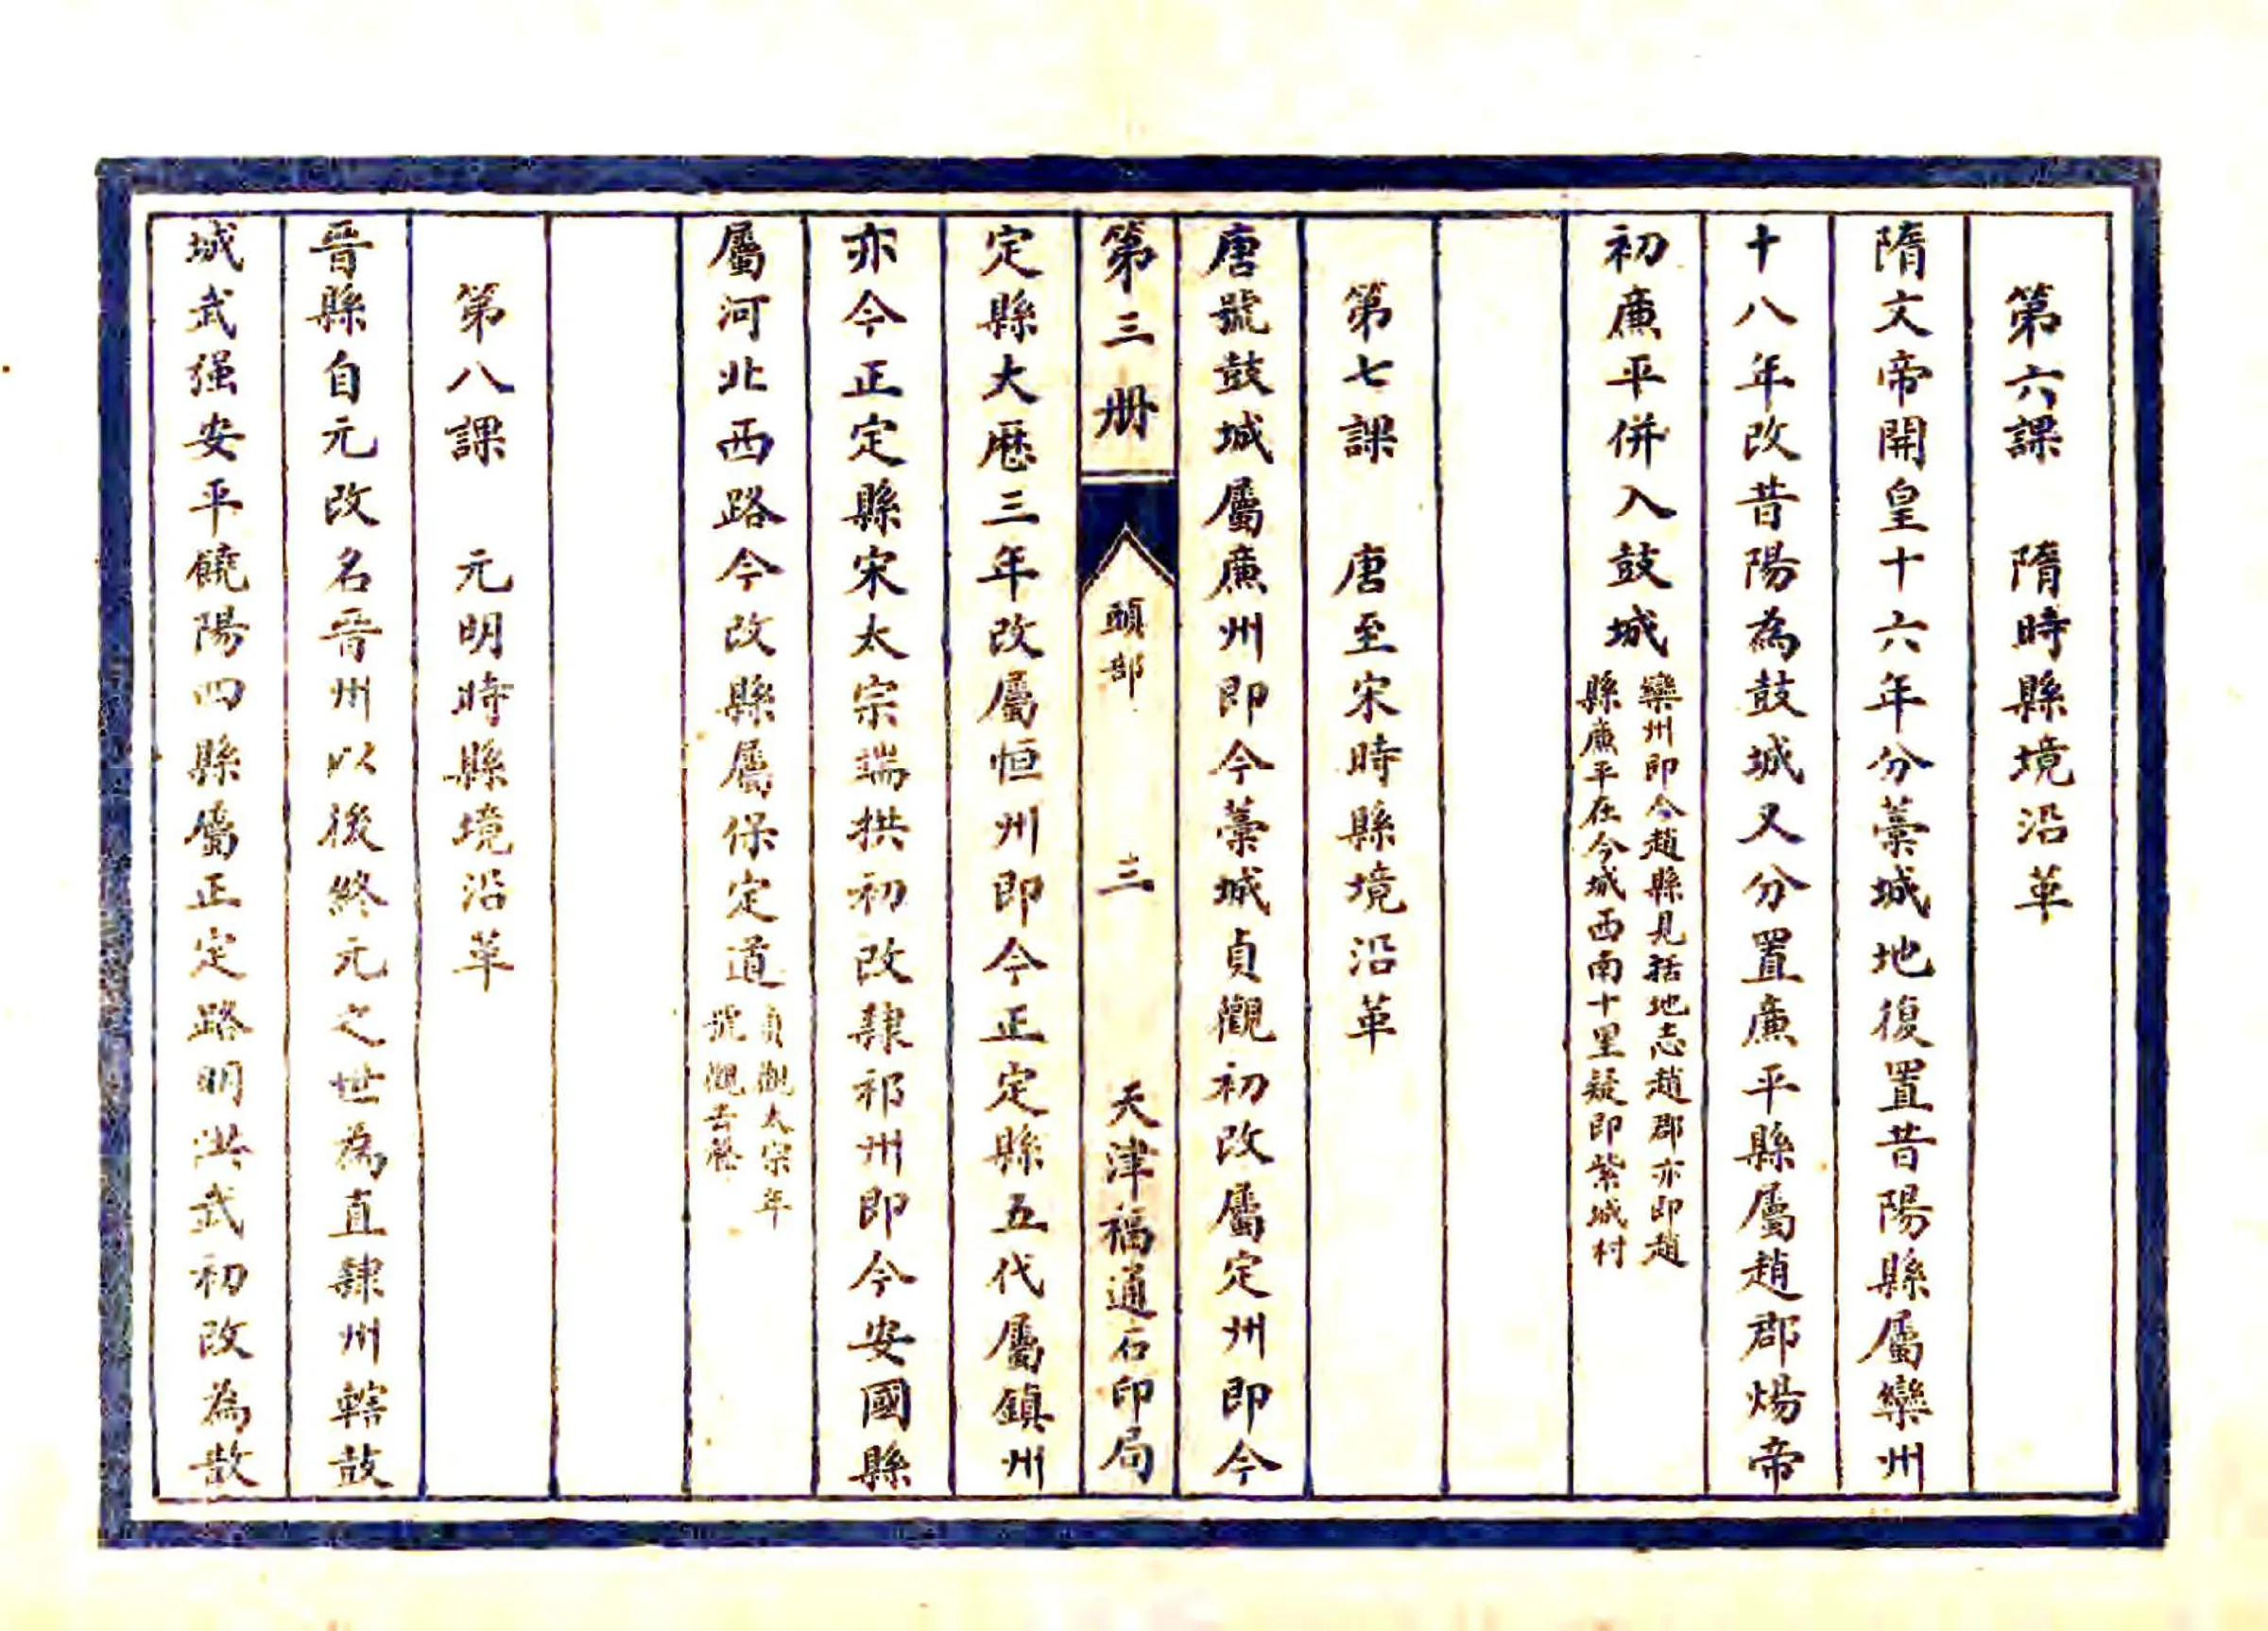 第六課　隋時縣境沿革
隋文帝開皇十六年分藁城地復置昔陽縣屬欒州
十八年改昔陽為鼓城又分置廉平縣屬趙郡煬帝
初廉平併入鼓城
欒州即今趙縣見括地志趙郡亦即趙
縣廉平在今城西南十里疑即紫城村
第七課　唐至宋時縣境沿革
唐號鼓城屬廉州即今藁城貞觀初改屬定州即今
第三册　頭部　三　天津福通石印局
定縣大歷三年改屬恒州即今正定縣五代屬鎮州
亦今正定縣宋太宗端拱初改隸祁州即今安國縣
屬河北西路今改縣屬保定道
貞觀太宗年
號觀去聲
第八課　元明時縣境沿革
晉縣自元改名晉州以後終元之世為直隸州轄鼓
城武强安平饒陽四縣屬正定路明洪武初改為散